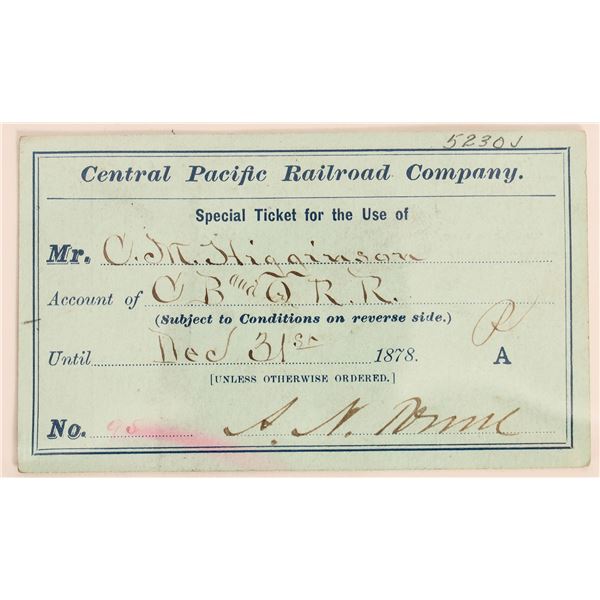 5230J
Central Pacific Railroad Company.
Special Ticket for the Use of
Mr. C. M. Higginson
Account of C B and Q R. R.
(Subject to Conditions on reverse side.)
Until Dec 31st 1878. A
[UNLESS OTHERWISE ORDERED.]
No. A. N. Towne